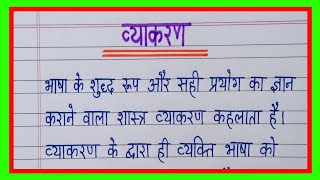 व्याकरण
भाषा के शुद्ध रूप और सही प्रयोग का ज्ञान
कराने वाला शास्त्र व्याकरण कहलाता है।
व्याकरण के द्वारा ही व्यक्ति भाषा को